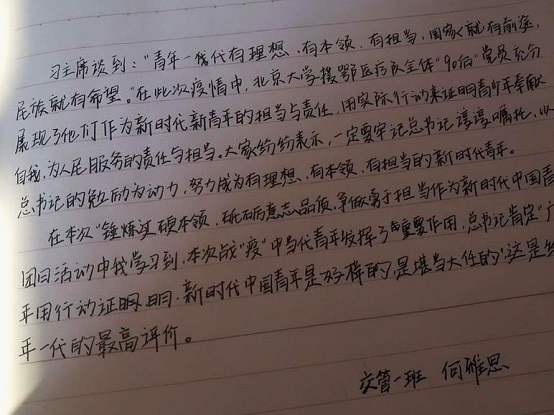 习主席谈到："青年一代有理想、有本领、有担当,国家就有前途,
民族就有希望。"在此次疫情中,北京大学援鄂医疗队全体"90后"党员充分
展现了他们作为新时代新青年的担当与责任,用实际行动来证明青少年奉献
自我、为人民服务的责任与担当。大家纷纷表示,一定要牢记总书记谆谆嘱托,以
总书记的勉励为动力,努力成为有理想、有本领、有担当的新时代青年。
在本次"锤炼过硬本领、砥砺意志品质,争做勇于担当作为新时代中国青
团日活动中我学习到,本次战"疫"中当代青年发挥了重要作用,总书记肯定"广
年用行动证明,新时代中国青年是好样的,是堪当大任的"这是
年一代的最高评价。
交管一班 何雅思